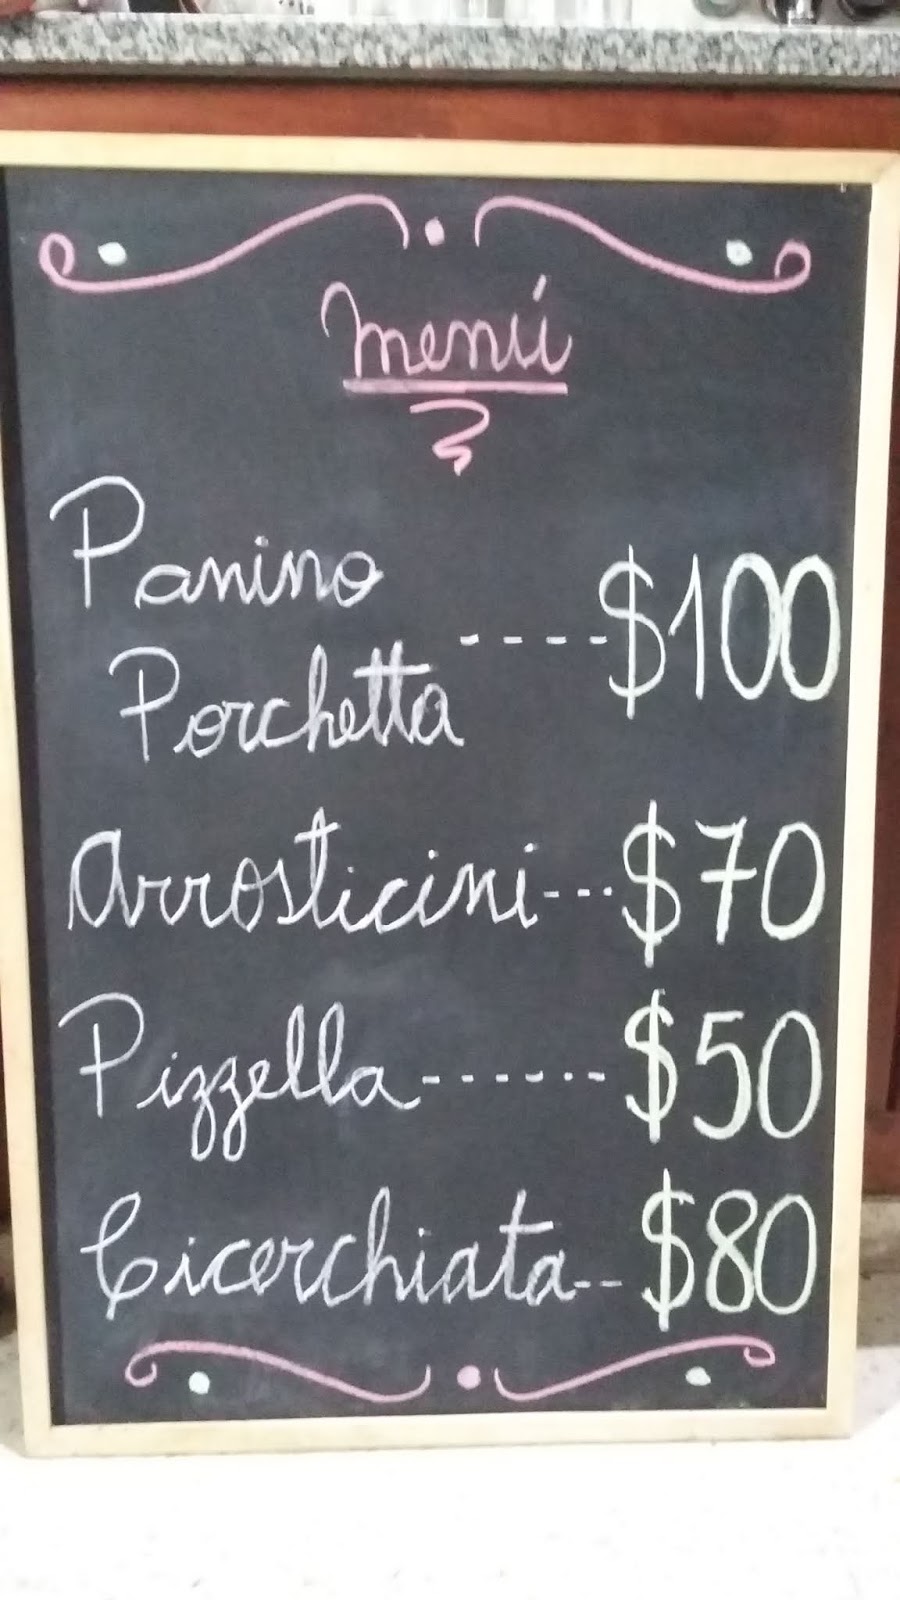 Menú
Panino
Porchetta ---- $100
Arrosticini --- $70
Pizzella ------ $50
Cicerchiata -- $80